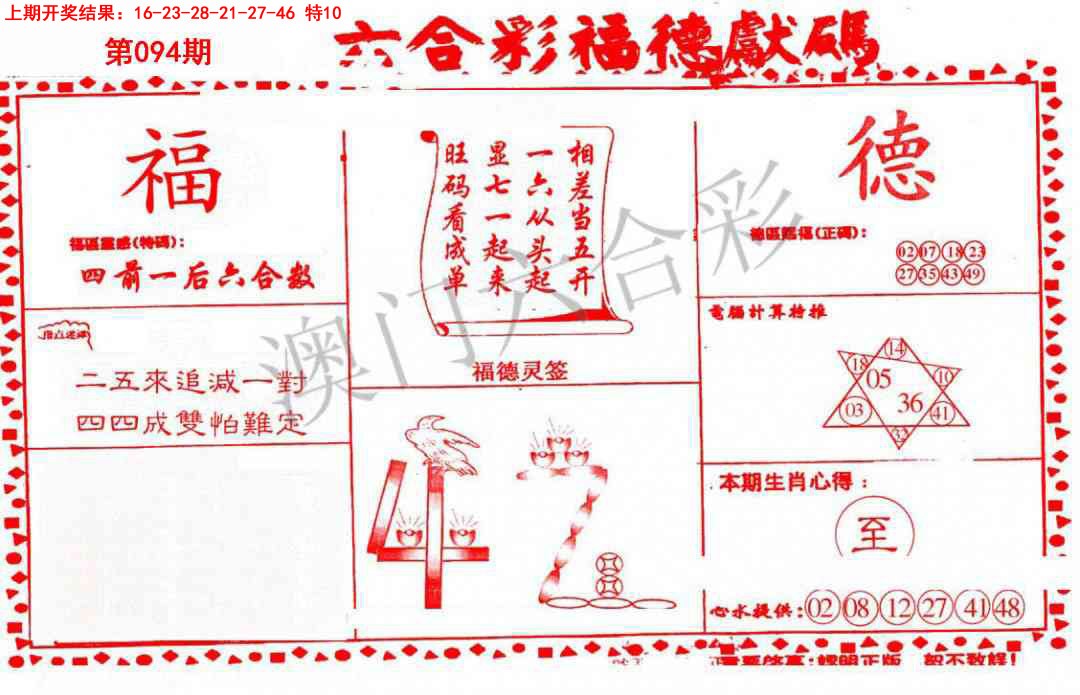 上期开奖结果：16-23-28-21-27-46 特10
第094期
六合彩福德獻碼
福
福區靈感(特碼)：
四前一后六合数
二五來追減一對
四四成雙怕難定
相差当五开
一六从头起
显七一起来
旺码看成单
福德灵签
42
德
德區賜福(正碼)：
02 07 18 23
27 35 43 49
電腦計算特推
14
18 05 10
03 36 41
32
本期生肖心得：
至
心水提供：02 08 12 27 41 48
澳门六合彩